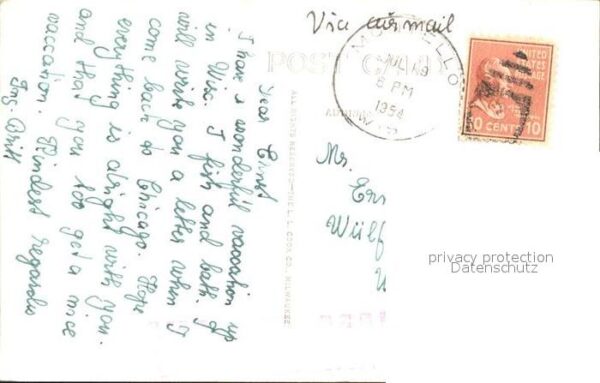 Via airmail
POST CARD
MONTELLO
JUL 19
8 PM
1954
WIS.
UNITED
STATES
POSTAGE
10 CENTS 10
Dear Ernst
I have a wonderful vaccation up
in Wisc. I fish and bath. I
will write you a letter when I
come back to Chicago. Hope
everything is alright with you.
and that you too get a nice
vacation. Kindest regards
ALL RIGHTS RESERVED—THE L. L. COOK CO., MILWAUKEE
Mr.
Ern
Wülf
privacy protection
Datenschutz